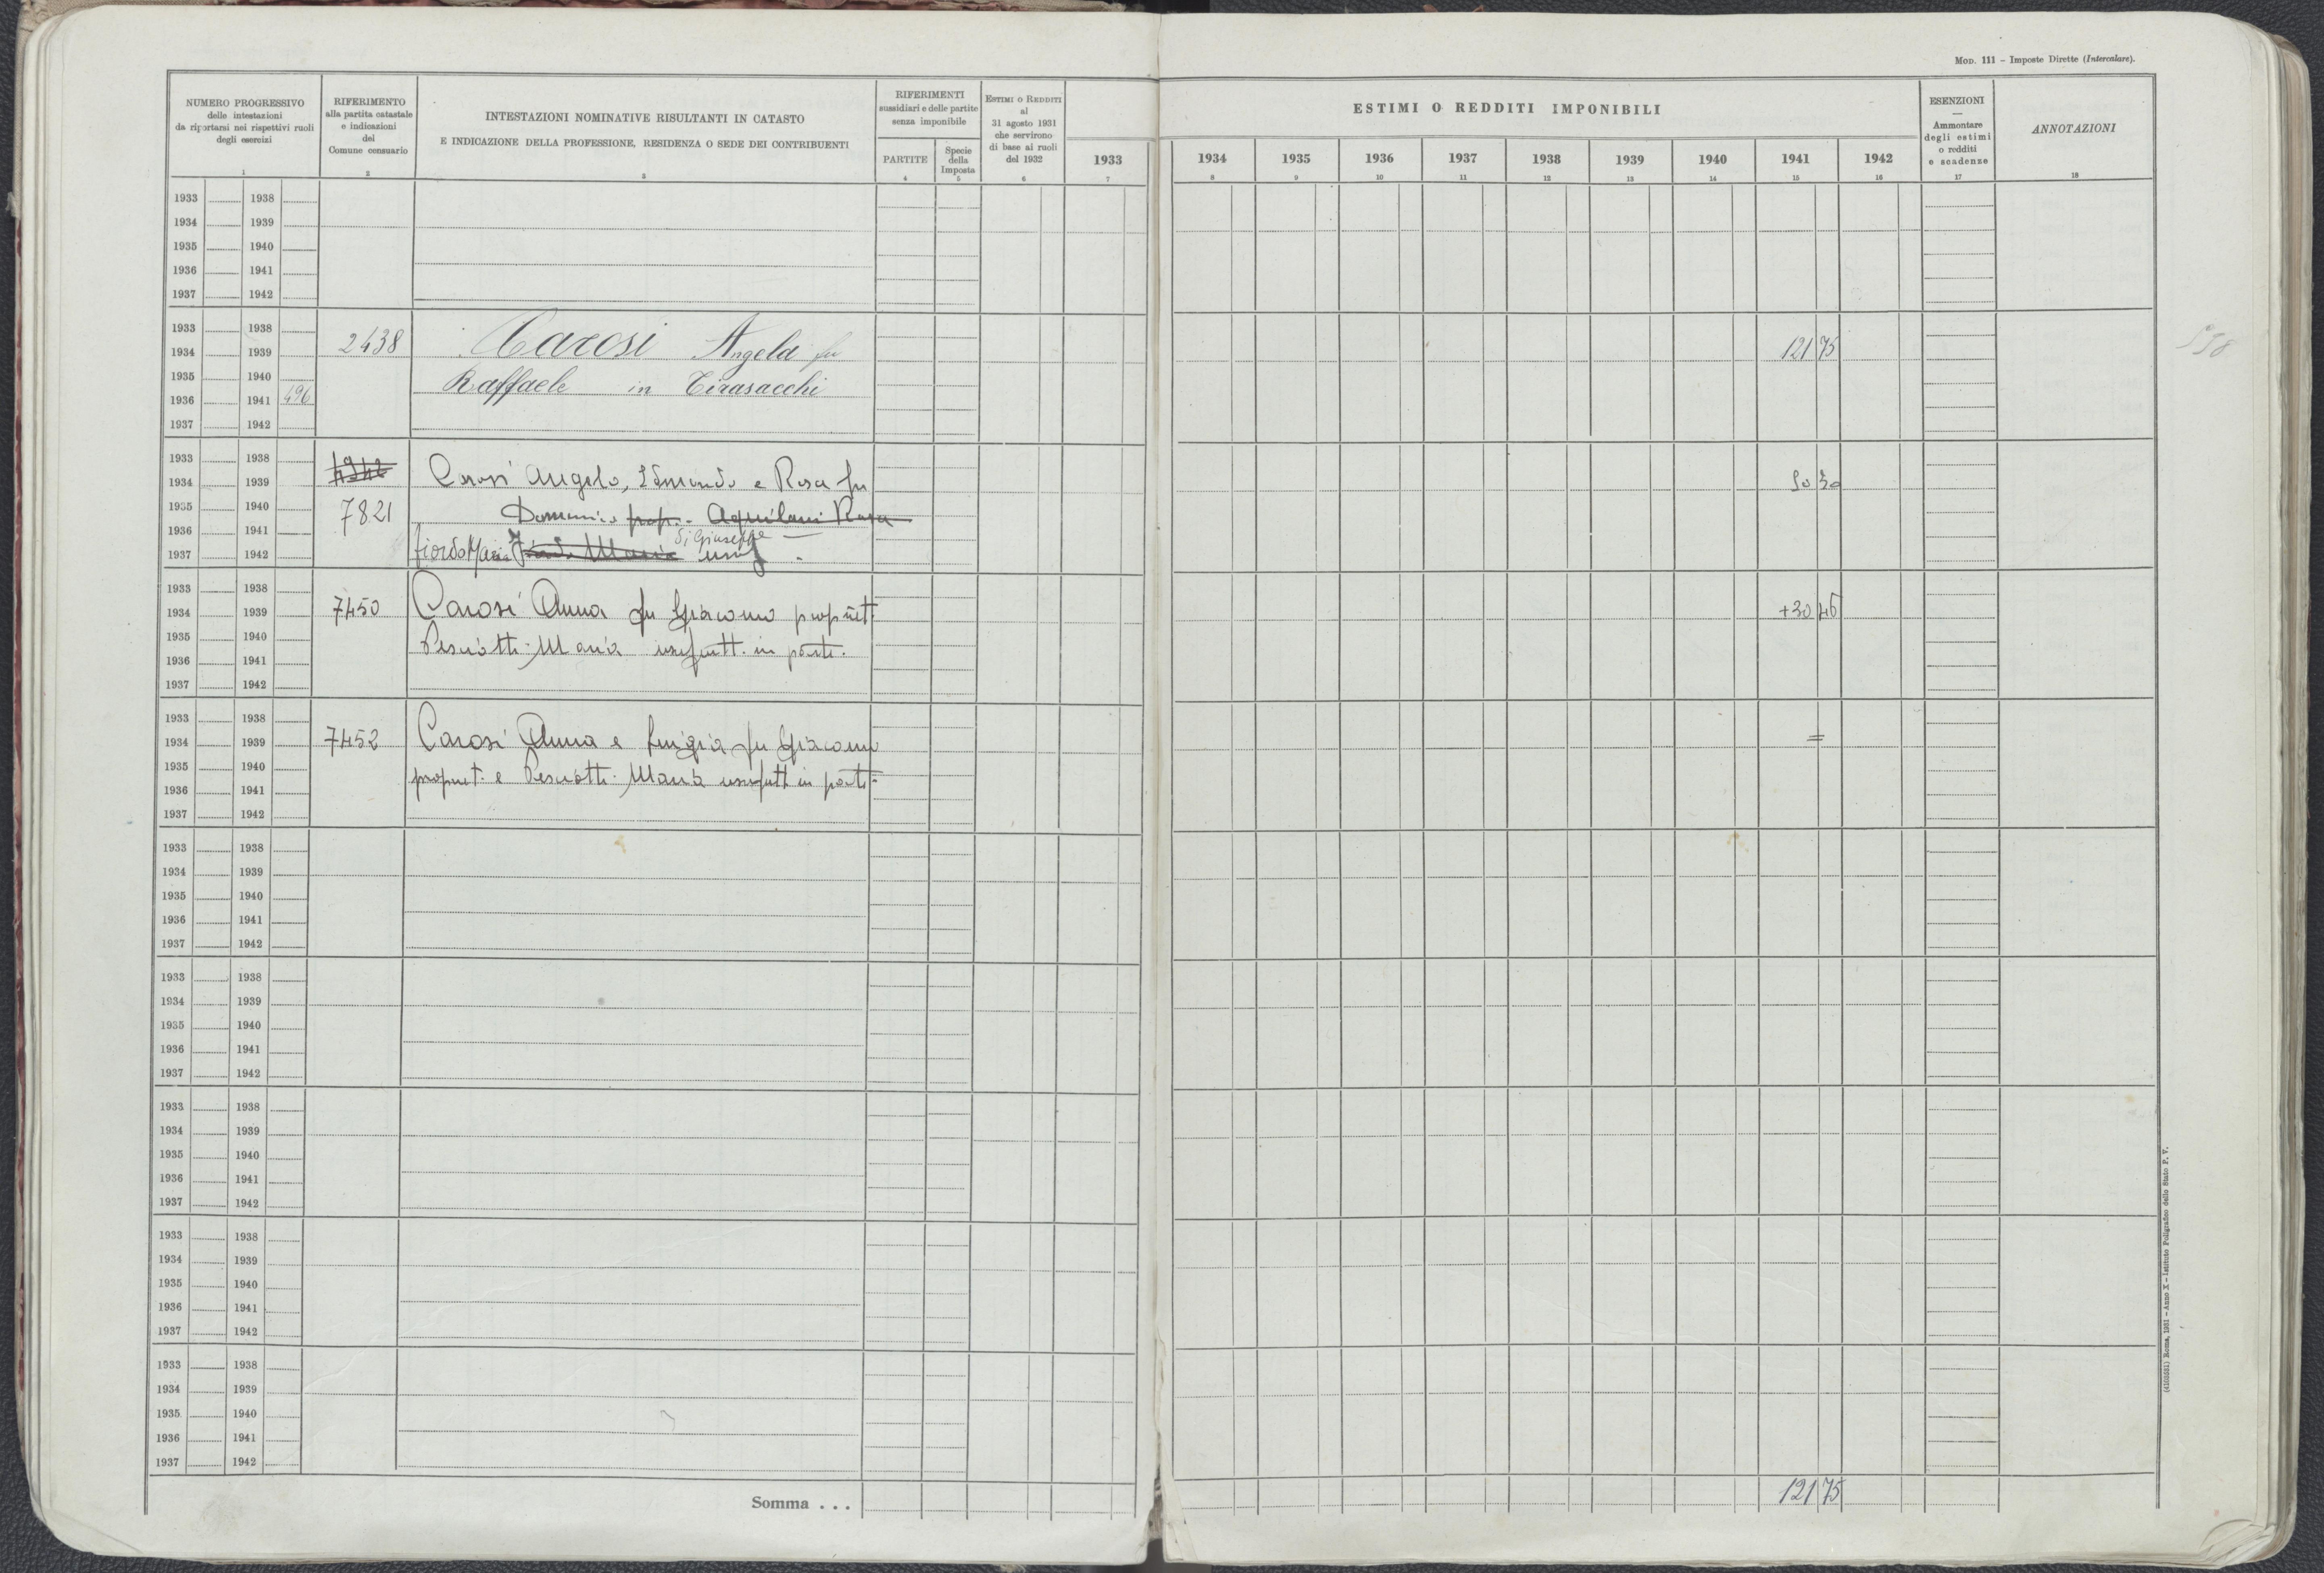 Mod. 111 - Imposte Dirette (Intercalare).
NUMERO PROGRESSIVO
delle intestazioni
da riportarsi nei rispettivi ruoli
degli esercizi
1
RIFERIMENTO
alla partita catastale
e indicazioni
del
Comune censuario
2
INTESTAZIONI NOMINATIVE RISULTANTI IN CATASTO
E INDICAZIONE DELLA PROFESSIONE, RESIDENZA O SEDE DEI CONTRIBUENTI
3
RIFERIMENTI
sussidiari e delle partite
senza imponibile
PARTITE
4
Specie
della
Imposta
5
Estimi o Redditi
al
31 agosto 1931
che servirono
di base ai ruoli
del 1932
6
ESTIMI O REDDITI IMPONIBILI
1933 1934 1935 1936 1937 1938 1939 1940 1941 1942
7 8 9 10 11 12 13 14 15 16
ESENZIONI
Ammontare
degli estimi
o redditi
e scadenze
17
ANNOTAZIONI
18
1933 1938
1934 1939
1935 1940
1936 1941
1937 1942
1933 1938
1934 1939 2438 Carosi Angela fu 121 75
1935 1940 Raffaele in Tirasacchi
1936 1941 496
1937 1942
1933 1938
1934 1939 Carosi Angelo, Edmondo e Rosa fu 50 30
1935 1940 7821 Domenico prop. - Aquilani Rosa
1936 1941 di Giuseppe
1937 1942 Fiordo Maria usuf.
1933 1938
1934 1939 7450 Carosi Anna fu Giacomo propriet. +30 46
1935 1940 Pesciotti Maria usufrutt. in parte.
1936 1941
1937 1942
1933 1938
1934 1939 7452 Carosi Anna e Luigia fu Giacomo =
1935 1940 propriet. e Pesciotti Maria usufrutt. in parte
1936 1941
1937 1942
1933 1938
1934 1939
1935 1940
1936 1941
1937 1942
1933 1938
1934 1939
1935 1940
1936 1941
1937 1942
1933 1938
1934 1939
1935 1940
1936 1941
1937 1942
1933 1938
1934 1939
1935 1940
1936 1941
1937 1942
1933 1938
1934 1939
1935 1940
1936 1941
1937 1942
Somma . . . 121 75
(4103531) Roma, 1931 - Anno X - Istituto Poligrafico dello Stato P. V.